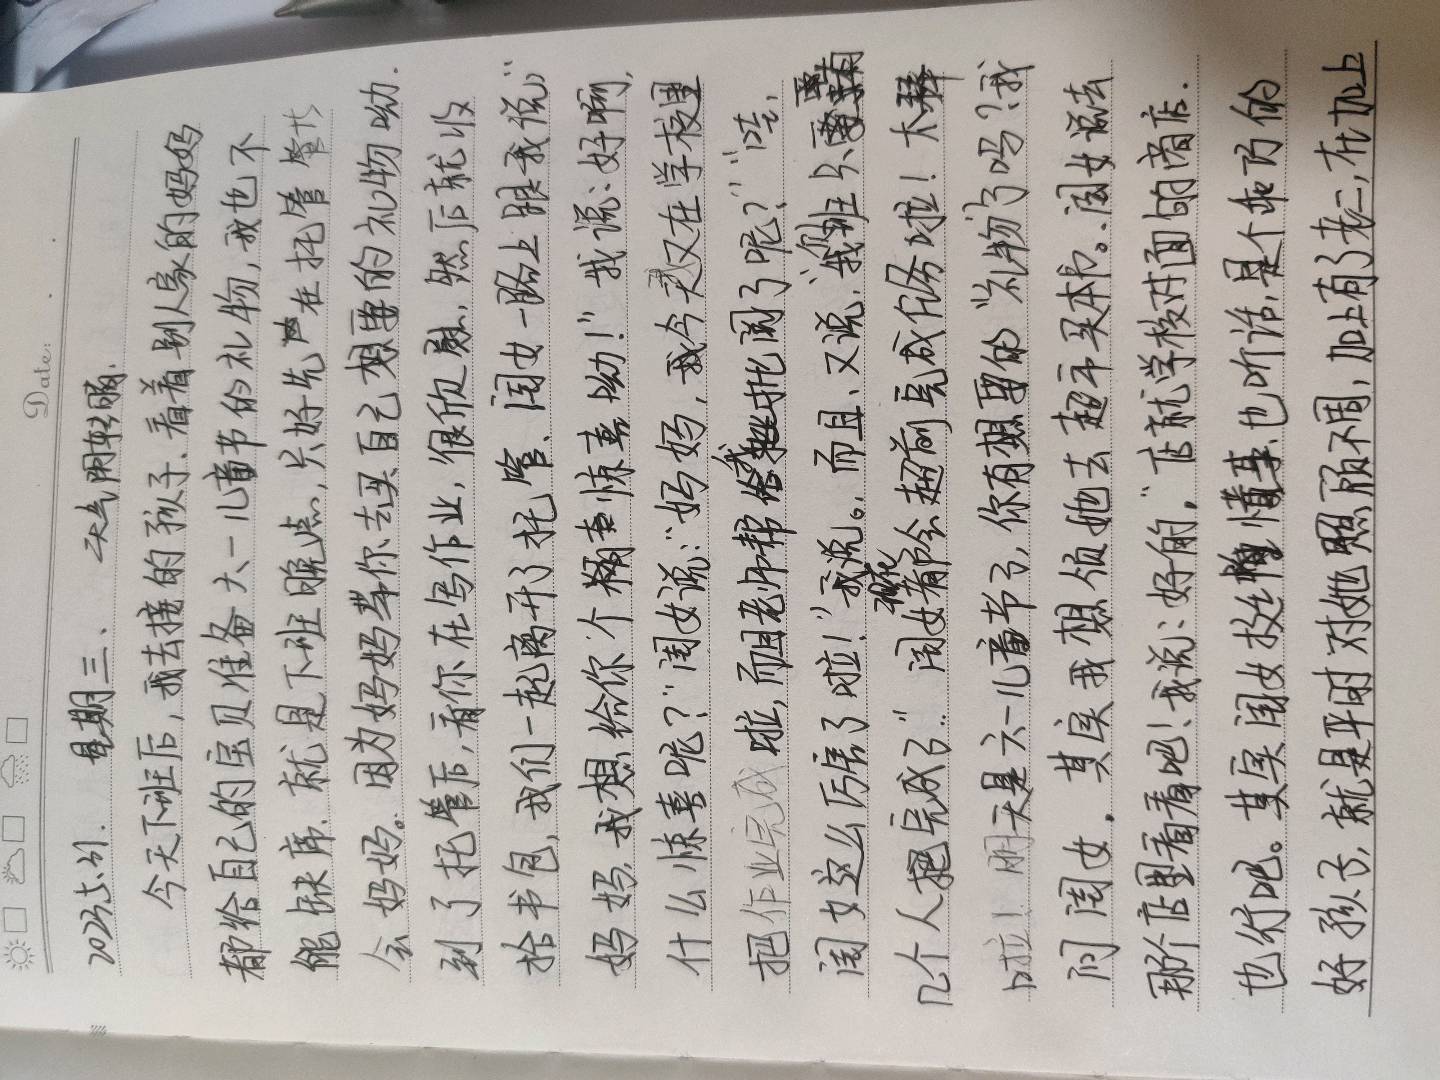 Date:
2023.5.31. 星期三、 天气阴转晴.
今天下班后,我去接的孩子、看着别人家的妈妈
都给自己的宝贝准备六一儿童节的礼物,我也不
能缺席、就是下班晚点,只好先在托管
会妈妈。因为妈妈带你去买自己想要的礼物呦.
到了托管后,看你在写作业,很欣慰,然后就收
拾书包,我们一起离开了托管、闺女一路上跟我说,"
妈妈,我想给你个惊喜呦!"我说:好啊,
什么惊喜呢?"闺女说:"妈妈,我今天又在学校里
把作业完成啦,而且老师帮我批阅了呢?""哇,
闺女这么厉害了啦!"我说。而且、又说,"我们班只
几个人把完成了."闺女都会超前完成任务啦!大
啦!明天是六一儿童节了,你有想要的"礼物"了吗?我
问闺女.其实我想领她去超市买本书。闺女说去
那个店里看看吧!我说:好的,"店就学校对面的商店.
也行吧。其实闺女挺懂事也听话,是个乖巧的
好孩子,就是平时对她照顾不周,加上有了老二,在加上